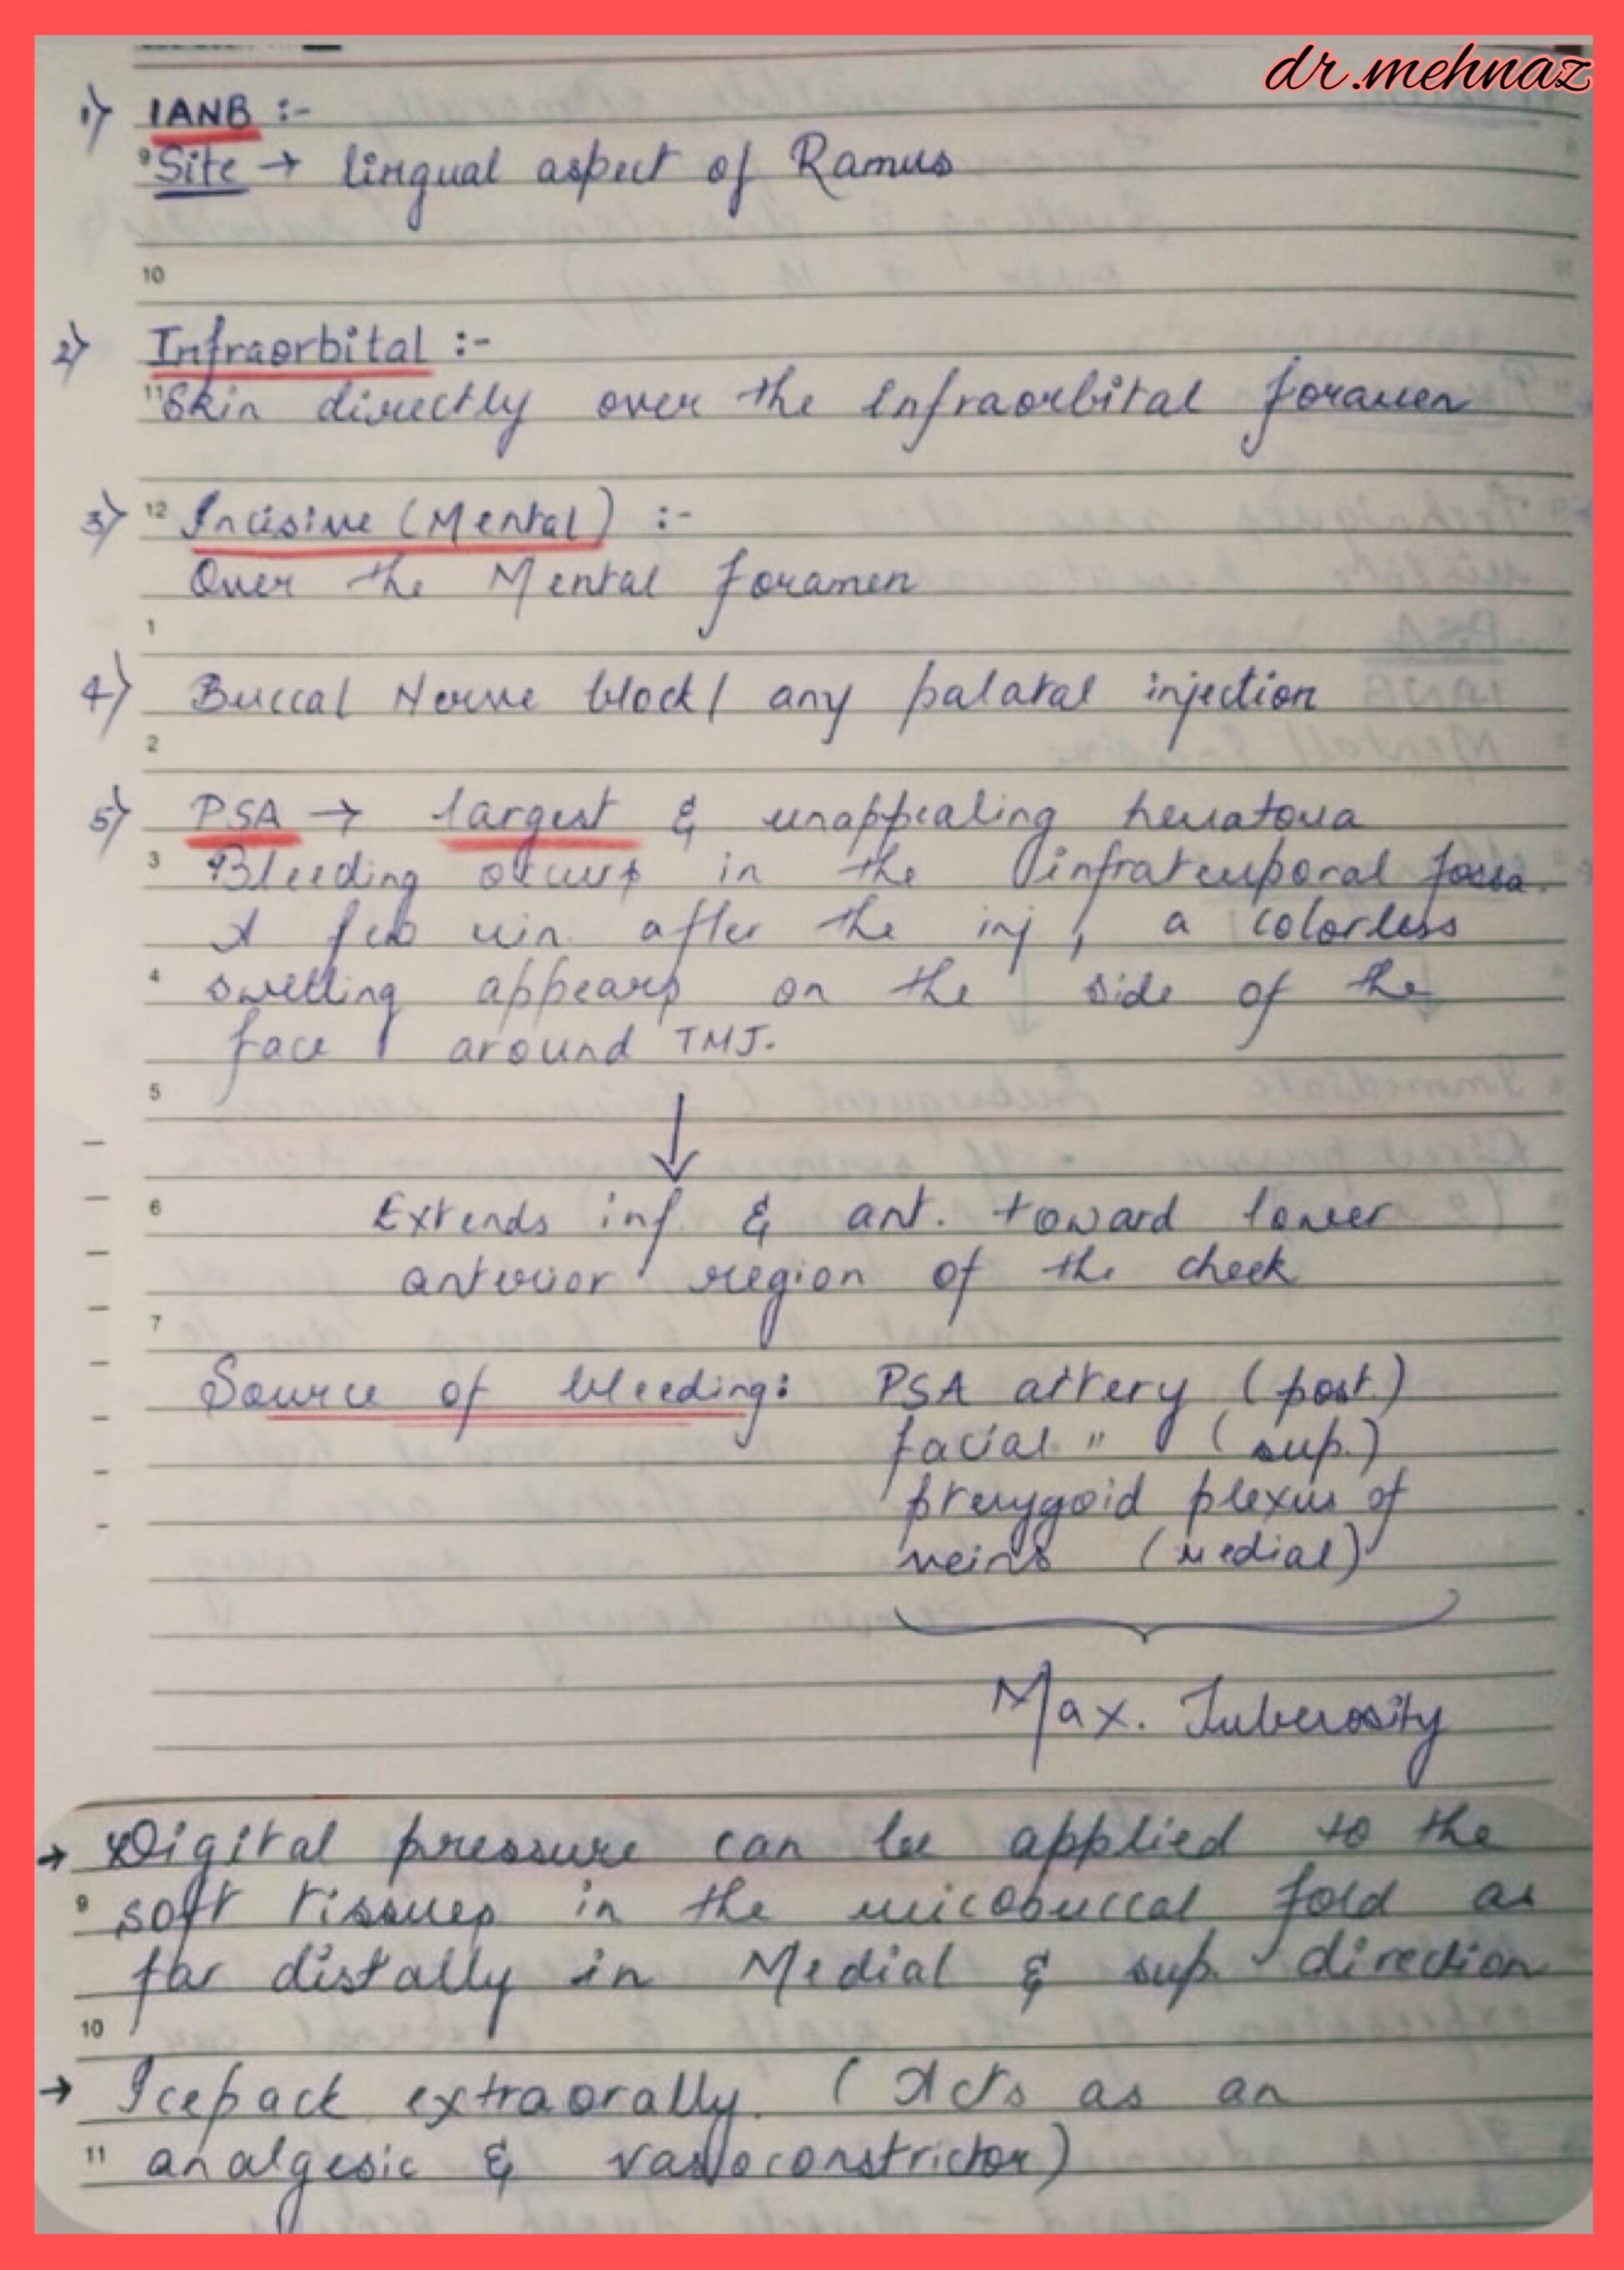 dr.mehnaz
1) IANB :-
9 Site → lingual aspect of Ramus
10
2) Infraorbital :-
11 Skin directly over the Infraorbital foramen
3) 12 Incisive (Mental) :-
Over the Mental foramen
1
4) Buccal Nerve block / any palatal injection
2
5) PSA → largest & unappealing hematoma
3 Bleeding occurs in the infratemporal fossa.
A few min after the inj, a colorless
4 swelling appears on the side of the
face around TMJ.
5
↓
6 Extends inf & ant. toward lower
anterior region of the cheek
7
Source of bleeding: PSA artery (post.)
facial " (sup.)
pterygoid plexus of
veins (Medial)
Max. Tuberosity
→ Digital pressure can be applied to the
9 soft tissues in the mucobuccal fold as
far distally in Medial & sup. direction
10
→ Icepack extraorally. (Acts as an
11 analgesic & vasoconstrictor)